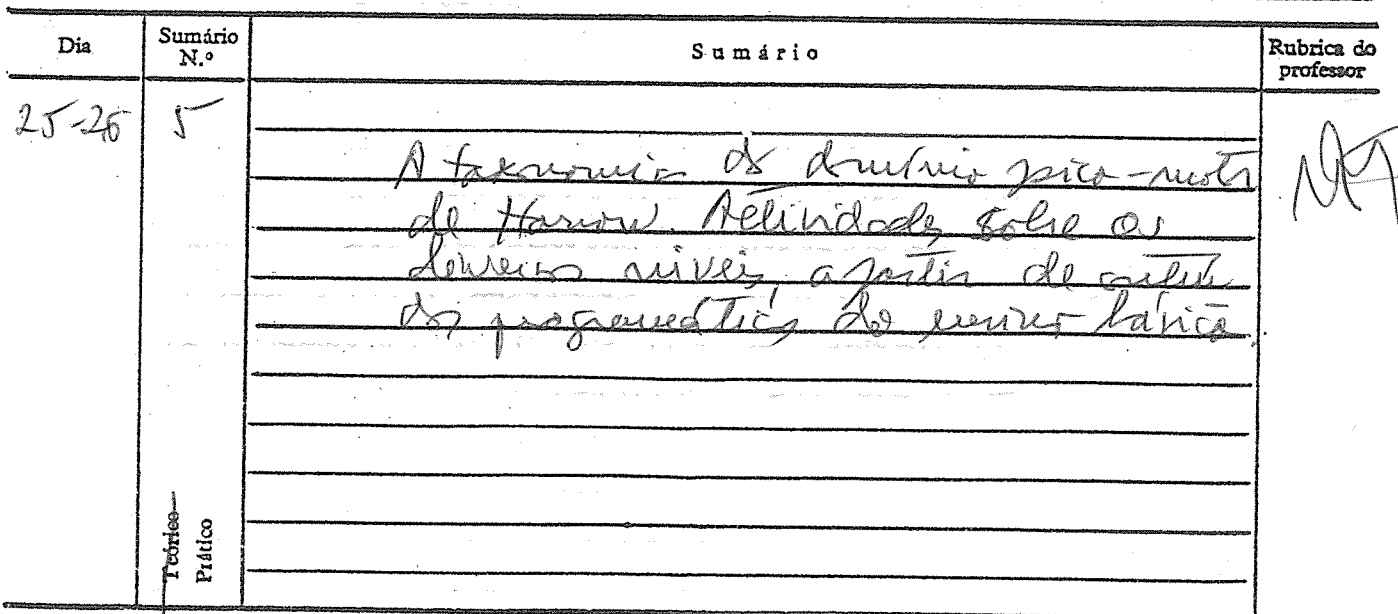 Dia
Sumário N.º
Sumário
Rubrica do professor
25-26
5
A taxonomia do domínio psico-motor
de Harrow. Actividades sobre os
níveis, a partir de conteú
dos programáticos do ensino básico.
Teórico
Prático